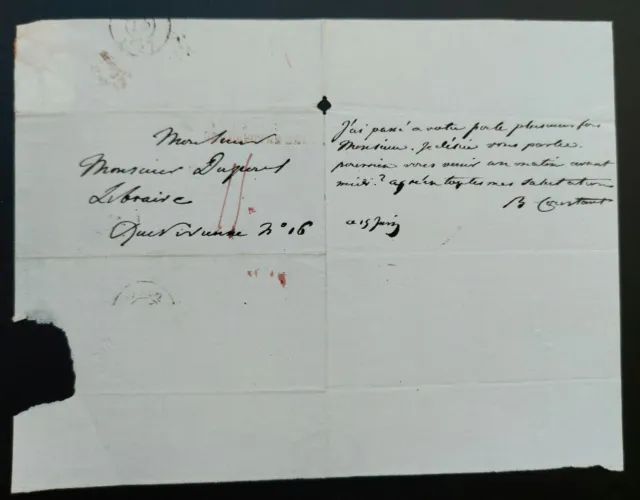 Monsieur
Monsieur Dupont
Libraire
Rue Vivienne N° 16
J'ai passé a votre porte plusieurs fois
Monsieur. Je désire vous parler
pourriez vous venir un matin avant
midi? agréez toutes mes salutations
B Constant
a 15 Juin